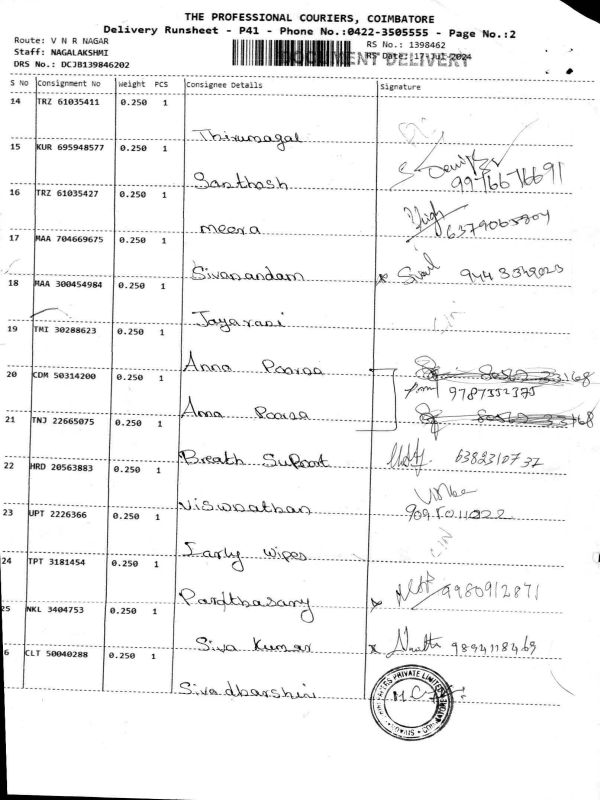 THE PROFESSIONAL COURIERS, COIMBATORE
Delivery Runsheet - P41 - Phone No.:0422-3505555 - Page No.:2
Route: V N R NAGAR
RS No.: 1398462
Staff: NAGALAKSHMI
DOCUMENT DELIVERY
RS Date: 17-Jul-2024
DRS No.: DCJB139846202
S No Consignment No Weight PCS Consignee Details Signature
14 TRZ 61035411 0.250 1
Thirumagal
15 KUR 695948577 0.250 1
Santhosh 9976676691
16 TRZ 61035427 0.250 1
Meera
17 MAA 704669675 0.250 1
Sivanandam
18 MAA 300454984 0.250 1
Jayarani
19 TMI 30288623 0.250 1
Anna Poorna
20 CDM 50314200 0.250 1
Anna Poorna
21 TNJ 22665075 0.250 1
Breath Support 6382310737
22 HRD 20563883 0.250 1
Viswnathan
23 UPT 2226366 0.250 1
Early Wipes
24 TPT 3181454 0.250 1
Pardthasary 9980912871
25 NKL 3404753 0.250 1
Siva Kumar 9894118469
6 CLT 50040288 0.250 1
Sivadharshini
PRIVATE LIMITED